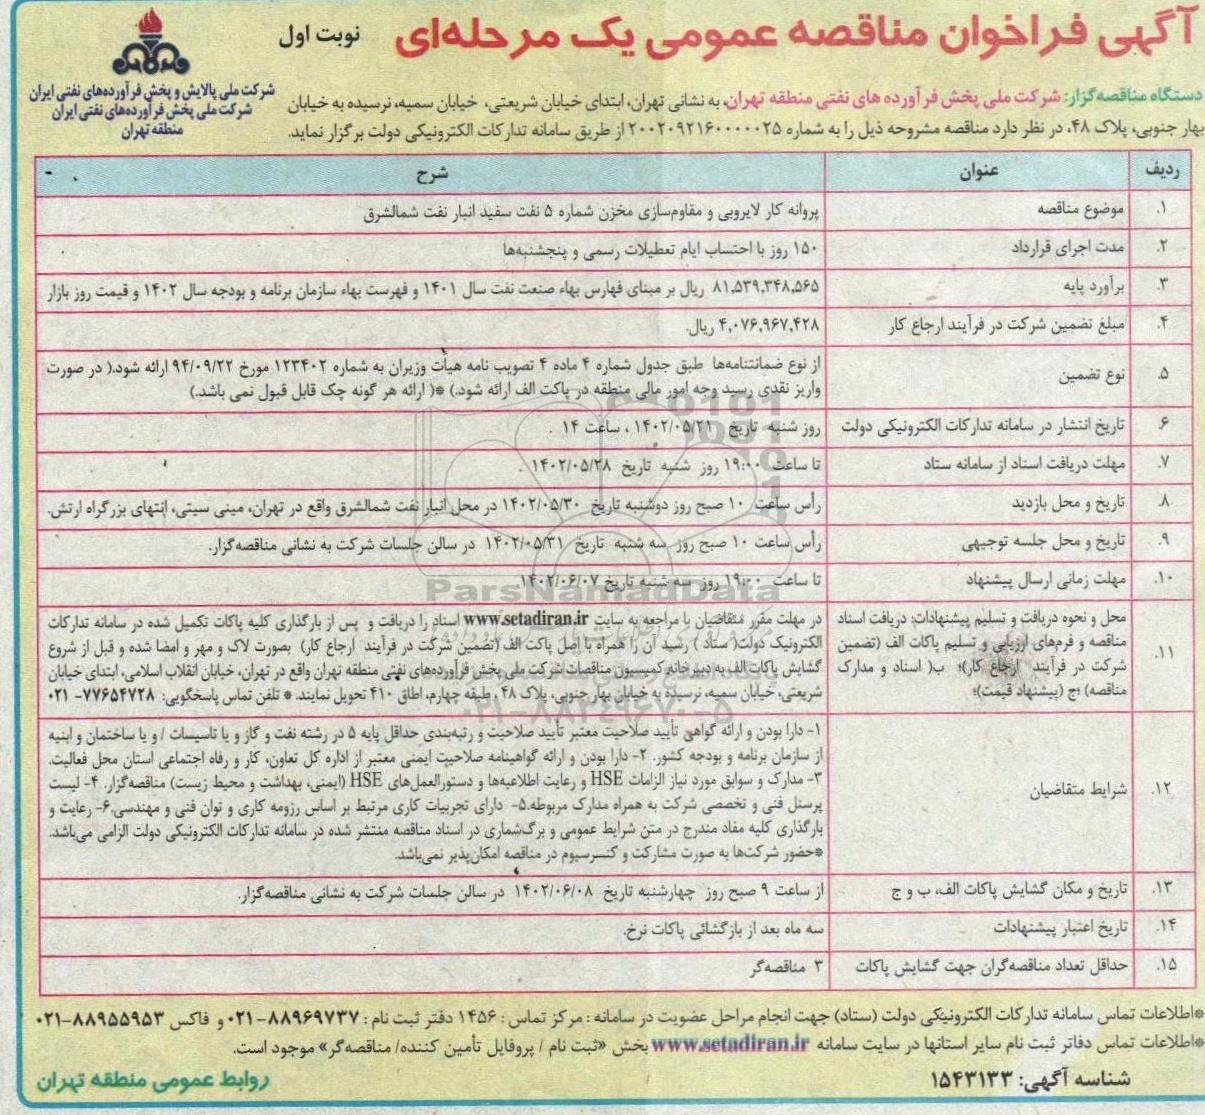 آگهی فراخوان مناقصه عمومی یک مرحله‌ای
نوبت اول
شرکت ملی پالایش و پخش فرآورده‌های نفتی ایران
شرکت ملی پخش فرآورده‌های نفتی ایران
منطقه تهران
دستگاه مناقصه‌گزار: شرکت ملی پخش فرآورده های نفتی منطقه تهران، به نشانی تهران، ابتدای خیابان شریعتی، خیابان سمیه، نرسیده به خیابان
بهار جنوبی، پلاک ۴۸، در نظر دارد مناقصه مشروحه ذیل را به شماره ۲۰۰۲۰۹۲۱۶۰۰۰۰۰۲۵ از طریق سامانه تدارکات الکترونیکی دولت برگزار نماید.
ردیف عنوان شرح
۱. موضوع مناقصه پروانه کار لایروبی و مقاوم‌سازی مخزن شماره ۵ نفت سفید انبار نفت شمالشرق
۲. مدت اجرای قرارداد ۱۵۰ روز با احتساب ایام تعطیلات رسمی و پنجشنبه‌ها
۳. برآورد پایه ۸۱,۵۳۹,۳۴۸,۵۶۵ ریال بر مبنای فهارس بهاء صنعت نفت سال ۱۴۰۱ و فهرست بهاء سازمان برنامه و بودجه سال ۱۴۰۲ و قیمت روز بازار
۴. مبلغ تضمین شرکت در فرآیند ارجاع کار ۴,۰۷۶,۹۶۷,۴۲۸ ریال.
۵. نوع تضمین از نوع ضمانتنامه‌ها طبق جدول شماره ۴ ماده ۴ تصویب نامه هیأت وزیران به شماره ۱۲۳۴۰۲ مورخ ۹۴/۰۹/۲۲ ارائه شود.( در صورت
واریز نقدی رسید وجه امور مالی منطقه در پاکت الف ارائه شود.) *( ارائه هر گونه چک قابل قبول نمی باشد.)
۶. تاریخ انتشار در سامانه تدارکات الکترونیکی دولت روز شنبه تاریخ ۱۴۰۲/۰۵/۲۱ ، ساعت ۱۴ .
۷. مهلت دریافت اسناد از سامانه ستاد تا ساعت ۱۹:۰۰ روز شنبه تاریخ ۱۴۰۲/۰۵/۲۸ .
۸. تاریخ و محل بازدید رأس ساعت ۱۰ صبح روز دوشنبه تاریخ ۱۴۰۲/۰۵/۳۰ در محل انبار نفت شمالشرق واقع در تهران، مینی سیتی، انتهای بزرگراه ارتش.
۹. تاریخ و محل جلسه توجیهی رأس ساعت ۱۰ صبح روز سه شنبه تاریخ ۱۴۰۲/۰۵/۳۱ در سالن جلسات شرکت به نشانی مناقصه‌گزار.
۱۰. مهلت زمانی ارسال پیشنهاد تا ساعت ۱۹:۰۰ روز سه شنبه تاریخ ۱۴۰۲/۰۶/۰۷.
۱۱. محل و نحوه دریافت و تسلیم پیشنهادات: دریافت اسناد
مناقصه و فرم‌های ارزیابی و تسلیم پاکات الف (تضمین
شرکت در فرآیند ارجاع کار)؛ ب( اسناد و مدارک
مناقصه) ؛ج (پیشنهاد قیمت)؛
در مهلت مقرر متقاضیان با مراجعه به سایت www.setadiran.ir اسناد را دریافت و پس از بارگذاری کلیه پاکات تکمیل شده در سامانه تدارکات
الکترونیک دولت( ستاد ) رشید آن را همراه با اصل پاکت الف (تضمین شرکت در فرآیند ارجاع کار) بصورت لاک و مهر و امضا شده و قبل از شروع
گشایش پاکات الف به دبیرخانه کمیسیون مناقصات شرکت ملی پخش فرآورده‌های نفتی منطقه تهران واقع در تهران، خیابان انقلاب اسلامی، ابتدای خیابان
شریعتی، خیابان سمیه، نرسیده به خیابان بهار جنوبی، پلاک ۴۸ ، طبقه چهارم، اطاق ۴۱۰ تحویل نمایند. * تلفن تماس پاسخگویی: ۷۷۶۵۴۷۲۸- ۰۲۱
۱۲. شرایط متقاضیان
۱- دارا بودن و ارائه گواهی تأیید صلاحیت معتبر تأیید صلاحیت و رتبه‌بندی حداقل پایه ۵ در رشته نفت و گاز و یا تاسیسات / و یا ساختمان و ابنیه
از سازمان برنامه و بودجه کشور. ۲- دارا بودن و ارائه گواهینامه صلاحیت ایمنی معتبر از اداره کل تعاون، کار و رفاه اجتماعی استان محل فعالیت.
۳- مدارک و سوابق مورد نیاز الزامات HSE و رعایت اطلاعیه‌ها و دستورالعمل‌های HSE (ایمنی، بهداشت و محیط زیست) مناقصه‌گزار. ۴- لیست
پرسنل فنی و تخصصی شرکت به همراه مدارک مربوطه.۵- دارای تجربیات کاری مرتبط بر اساس رزومه کاری و توان فنی و مهندسی.۶- رعایت و
بارگذاری کلیه مفاد مندرج در متن شرایط عمومی و برگ‌شماری در اسناد مناقصه منتشر شده در سامانه تدارکات الکترونیکی دولت الزامی می‌باشد.
*حضور شرکت‌ها به صورت مشارکت و کنسرسیوم در مناقصه امکان‌پذیر نمی‌باشد.
۱۳. تاریخ و مکان گشایش پاکات الف، ب و ج از ساعت ۹ صبح روز چهارشنبه تاریخ ۱۴۰۲/۰۶/۰۸ در سالن جلسات شرکت به نشانی مناقصه‌گزار.
۱۴. تاریخ اعتبار پیشنهادات سه ماه بعد از بازگشائی پاکات نرخ.
۱۵. حداقل تعداد مناقصه‌گران جهت گشایش پاکات ۳ مناقصه‌گر
*اطلاعات تماس سامانه تدارکات الکترونیکی دولت (ستاد) جهت انجام مراحل عضویت در سامانه : مرکز تماس : ۱۴۵۶ دفتر ثبت نام : ۸۸۹۶۹۷۳۷-۰۲۱ و فاکس ۸۸۹۵۵۹۵۳-۰۲۱
*اطلاعات تماس دفاتر ثبت نام سایر استانها در سایت سامانه www.setadiran.ir بخش «ثبت نام / پروفایل تأمین کننده/ مناقصه‌گر» موجود است.
شناسه آگهی: ۱۵۴۳۱۳۳
روابط عمومی منطقه تهران
ParsNamadData
۰۲۱-۸۸۳۴۹۶۷۰-۵